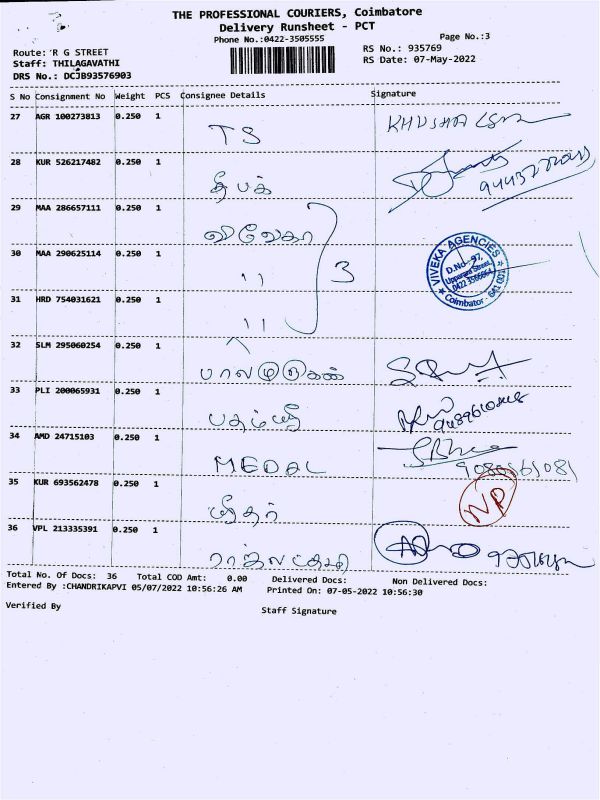 THE PROFESSIONAL COURIERS, Coimbatore
Delivery Runsheet - PCT
Phone No.:0422-3505555
Page No.:3
Route: R G STREET
RS No.: 935769
Staff: THILAGAVATHI
RS Date: 07-May-2022
DRS No.: DCJB93576903
S No Consignment No Weight PCS Consignee Details Signature
27 AGR 100273813 0.250 1
TS KHUSHAL
28 KUR 526217482 0.250 1
தீபக்
29 MAA 286657111 0.250 1
விவேகா
30 MAA 290625114 0.250 1
11 3
31 HRD 754031621 0.250 1
11
VIVEKA AGENCIES
D.No. 97,
Uppara Street,
Coimbator - 641 001
32 SLM 295060254 0.250 1
33 PLI 200065931 0.250 1
34 AMD 24715103 0.250 1
MEDAL
35 KUR 693562478 0.250 1
ஸ்ரீதர் NP
36 VPL 213335391 0.250 1
Total No. Of Docs: 36 Total COD Amt: 0.00 Delivered Docs: Non Delivered Docs:
Entered By :CHANDRIKAPVI 05/07/2022 10:56:26 AM Printed On: 07-05-2022 10:56:30
Verified By Staff Signature